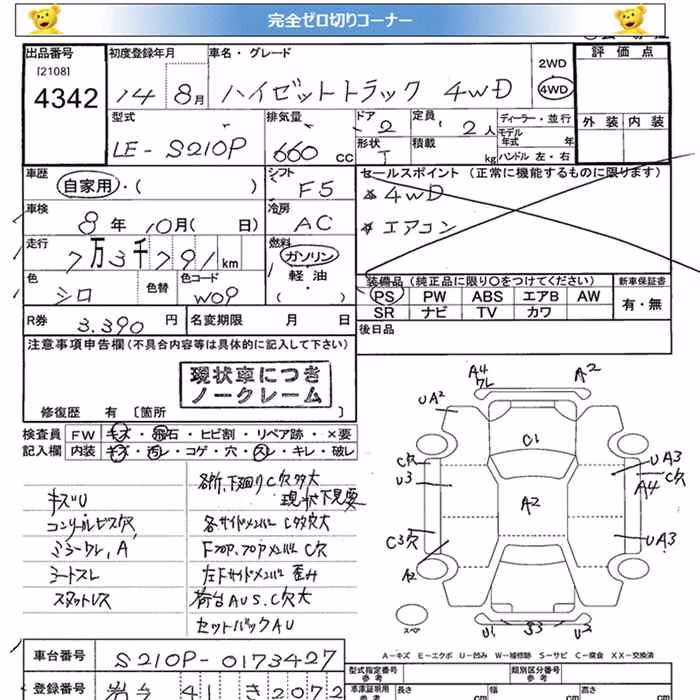 完全ゼロ切りコーナー
出品番号
[2108]
4342
初度登録年月
14年 8月
車名・グレード
ハイゼットトラック 4WD
2WD
4WD
評価点
外装 内装
型式
LE-S210P
排気量
660 cc
ドア 2
形状 T
定員 2人
積載 kg
ディーラー・並行
モデル
年式 年
ハンドル 左・右
車歴
自家用・( )
シフト
F5
セールスポイント (正常に機能するものに限ります)
* 4WD
* エアコン
車検
8年 10月( 日)
冷房
AC
走行
7万3千791km
燃料
ガソリン
軽油
( )
色
シロ
色替
色コード
W09
装備品 (純正品に限り○をつけてください)
PS PW ABS エアB AW
SR ナビ TV カワ
新車保証書
有・無
R券 3.390円
名変期限 月 日
後日品
注意事項申告欄 (不具合内容等は具体的に記入して下さい)
現状車につき
ノークレーム
修復歴 有 [箇所 ]
検査員
記入欄
FW キズ・飛石・ヒビ割・リペア跡・×要
内装 キズ・汚レ・コゲ・穴・スレ・キレ・破レ
各所、下廻りC欠多大
現状下見要
キズU
コンソールビス欠
各サイドメンバーC多穴大
ミラーワレ,A
Fフロア,フロアメンバーC穴
シートスレ
左Fサイドメンバー歪み
スタットレス
荷台AUS,C穴大
セットバックAU
A4
ワレ
A2
UA2
C1
C穴
U3
UA3
A4 C穴
A2
C3穴
UA3
A2
スペア
U1 S3 U2
A-キズ E-エクボ U-凹み W-補修跡 S-サビ C-腐食 XX-交換済
車台番号
S210P-0173427
型式指定番号
類別区分番号
登録番号
41 き 2072
車庫証明用
参考
長さ cm
幅 cm
高さ cm